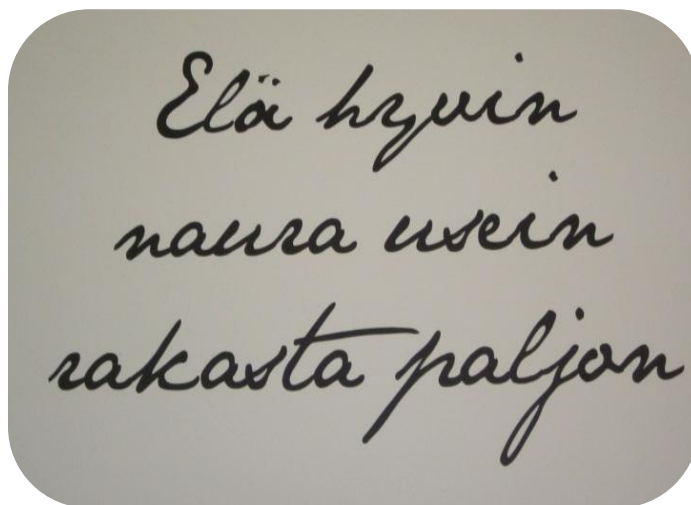 Elä hyvin
naura usein
rakasta paljon